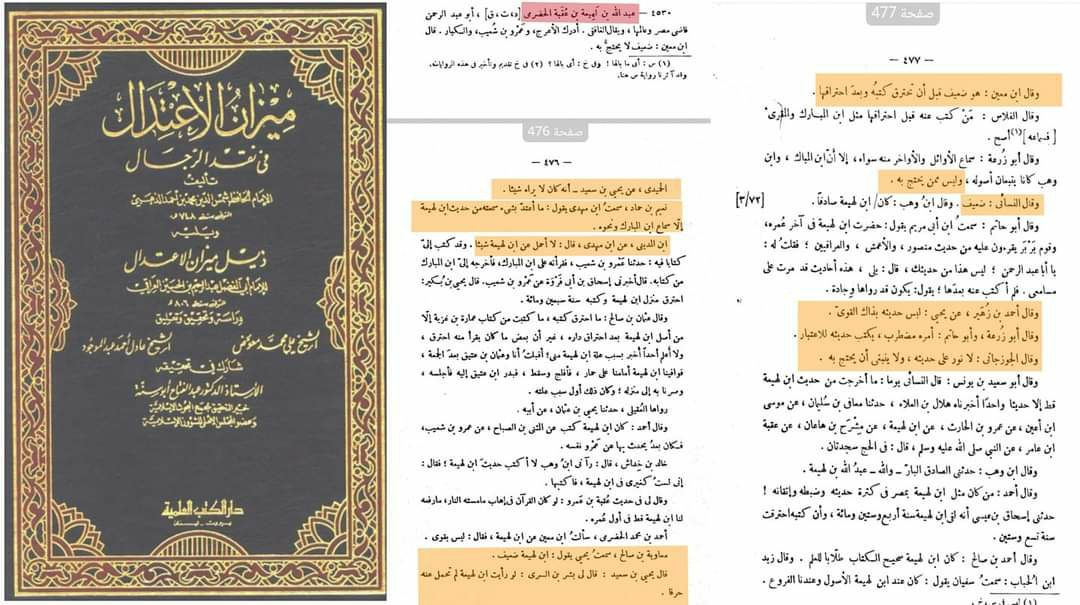 ميزان الاعتدال
في نقد الرجال
تأليف
الإمام الحافظ شمس الدين محمد بن أحمد الذهبي
المتوفى سنة ٧٤٨ هـ
ويليه
ذيل ميزان الاعتدال
للإمام أبي الفضل عبد الرحيم بن الحسين العراقي
المتوفى سنة ٨٠٦ هـ
دراسة وتحقيق وتعليق
الشيخ علي محمد معوض الشيخ عادل أحمد عبد الموجود
شارك في تحقيقه
الأستاذ الدكتور عبد الفتاح أبو سنة
خبير التحقيق بمجمع البحوث الإسلامية
وعضو المجلس الأعلى للشؤون الإسلامية
دار الكتب العلمية
بيروت - لبنان
٤٥٣٠ – عبد الله بن لهيعة بن عقبة الحضرمى [د، ت، ق]، أبو عبد الرحمن
قاضى مصر وعالمها، ويقال الغافقى. أدرك الأعرج، وعمرو بن شعيب، والكبار. قال
ابن معين: ضعيف لا يحتج به.
صفحة 476
— ٤٧٦ —
الحميدى، عن يحيى بن سعيد – أنه كان لا يراه شيئا.
نعيم بن حماد، سمعت ابن مهدى يقول: ما أعتد بشىء سمعته من حديث ابن لهيعة
إلا سماع ابن المبارك ونحوه.
ابن المدينى، عن ابن مهدى، قال: لا أحمل عن ابن لهيعة شيئا. وقد كتب إلىّ
كتابا فيه: حدثنا عمرو بن شعيب، فقرأته على ابن المبارك، فأخرجه إلىّ ابن المبارك
من كتابه. قال أخبرنى إسحاق بن أبى فروة عن عمرو بن شعيب. قال يحيى بن بكير:
احترق منزل ابن لهيعة وكتبه سنة سبعين ومائة.
وقال عثمان بن صالح: ما احترق كتبه، ما كتبت من كتاب عمارة بن غزية إلا
من أصل ابن لهيعة بعد احتراق داره، غير أن بعض ما كان يقرأ منه احترق،
ولا أعلم أحدا أخبر بسبب علة ابن لهيعة منى؛ أقبلت أنا وعثمان بن عتيق بعد الجمعة،
فوافينا ابن لهيعة أمامنا على حمار، فأفلج وسقط، فبدر ابن عتيق إليه فأجلسه،
وسرنا به إلى منزله؛ وكان ذلك أول سبب علته.
رواها العقيلى، حدثنا يحيى بن عثمان، عن أبيه.
وقال أحمد: كان ابن لهيعة كتب عن المثنى بن الصباح، عن عمرو بن شعيب،
فكان بعد يحدث بها عن عمرو نفسه.
خالد بن خداش، قال: رآنى ابن وهب لا أكتب حديث ابن لهيعة؛ فقال:
إنى لست كغيرى فى ابن لهيعة، فاكتبها.
وقال لى فى حديث عقبة بن عمرو: لو كان القرآن فى إهاب ما مسته النار، مارفعه
لنا ابن لهيعة قط فى أول عمره.
أحمد بن محمد الحضرمى، سألت ابن معين عن ابن لهيعة، فقال: ليس بقوى.
معاوية بن صالح، سمعت يحيى يقول: ابن لهيعة ضعيف.
قال يحيى بن سعيد: قال لى بشر بن السرى: لو رأيت ابن لهيعة لم تحمل عنه
حرفا.
صفحة 477
— ٤٧٧ —
وقال ابن معين: هو ضعيف قبل أن تحترق كتبه وبعد احتراقها.
وقال الفلاس: من كتب عنه قبل احتراقها مثل ابن المبارك والمقرىّ
[فسماعه](١) أصح.
وقال أبو زرعة: سماع الأوائل والأواخر منه سواء، إلا أن ابن المبارك، وابن
وهب كانا يتبعان أصوله، وليس ممن يحتج به.
وقال النسائى: ضعيف. وقال ابن وهب: كان/ ابن لهيعة صادقا. [٣/٧٢]
وقال أبو حاتم: سمعت ابن أبى مريم يقول: حضرت ابن لهيعة فى آخر عمره،
وقوم بربر يقرءون عليه من حديث منصور، والأعمش، والعراقيين؛ فقلت له:
يا أبا عبد الرحمن؛ ليس هذا من حديثك، قال: بلى، هذه أحاديث قد مرت على
مسامعى. فلم أكتب عنه بعدها؛ يقول: يكون قد رواها وجادة.
وقال أحمد بن زهير، عن يحيى: ليس حديثه بذاك القوىّ.
وقال أبو زرعة، وأبو حاتم: أمره مضطرب، يكتب حديثه للاعتبار.
وقال الجوزجانى: لا نور على حديثه، ولا ينبغى أن يحتج به.
وقال أبو سعيد بن يونس: قال النسائى يوما: ما أخرجت من حديث ابن لهيعة
قط إلا حديثا واحدا أخبرناه هلال بن العلاء، حدثنا معافى بن سليمان، عن موسى
ابن أعين، عن عمرو بن الحارث، عن ابن لهيعة، عن مشرح بن هاعان، عن عقبة
ابن عامر، عن النبى صلى الله عليه وسلم، قال: فى الحج سجدتان.
وقال ابن وهب: حدثنى الصادق البار – والله – عبد الله بن لهيعة.
وقال أحمد: من كان مثل ابن لهيعة بمصر فى كثرة حديثه وضبطه وإتقانه!
حدثنى إسحاق بن عيسى أنه لقى ابن لهيعة سنة أربع وستين ومائة، وأن كتبه احترقت
سنة تسع وستين.
وقال أحمد بن صالح: كان ابن لهيعة صحيح الكتاب طلابا للعلم. وقال زيد
ابن الحباب: سمعت سفيان يقول: كان عند ابن لهيعة الأصول وعندنا الفروع.